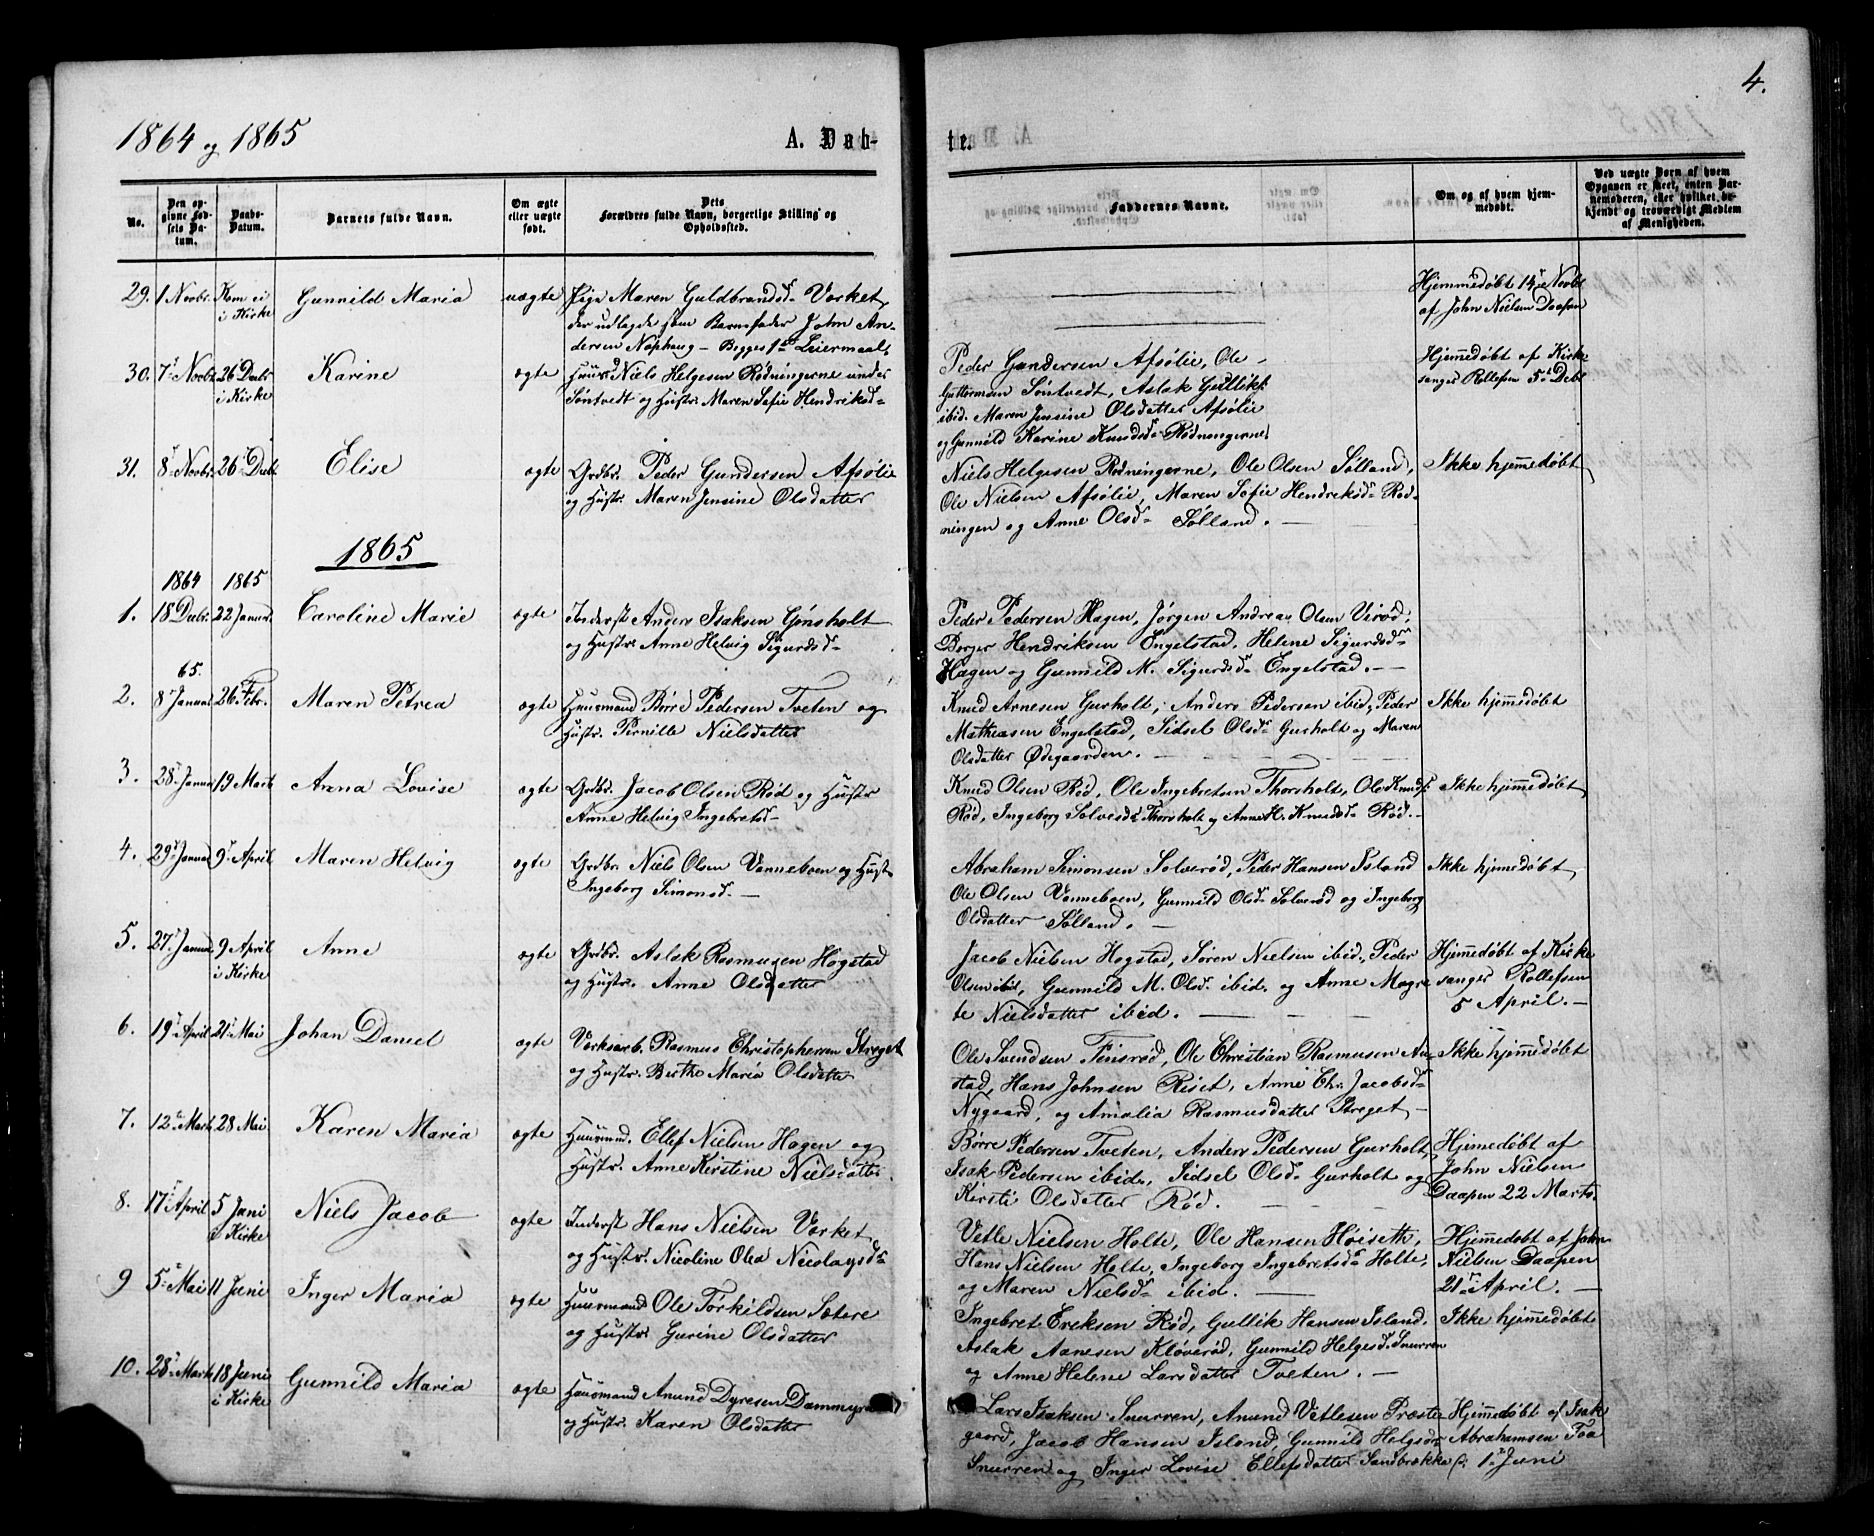 4.
1864 og 1865
A. Døb-
te.
No.
Den opgivne Fødsels Datum.
Daabs-Datum.
Barnets fulde Navn.
Om ægte eller uægte født.
Dets Forældres fulde Navn, borgerlige Stilling og Opholdssted.
Faddernes Navne.
Om og af hvem hjemmedøbt.
Ved uægte Børn af hvem Opgaven er skeet, enten Barnemoderen, eller hvilket bekjendt og troværdigt Medlem af Menigheden.
29. 1 Novbr. Kom ei i Kirke Gunnild Maria uægte Pige Maren Guldbrandsd. Vørket,
der udlagde som Barnefader John An-
dersen Naphaug – Begges 1ste Leiermaal,
Hjemmedøbt 14 Novbr
af John Nielsen Daapan
30. 7 Novbr 26 Debr i Kirke Karine ægte Huusm. Niels Helgesen Rødningerne under
Søntvedt og Hustr. Maren Sofie Hendriksd.
Peder Gundersen Afsølie, Ole
Guttormsen Søntvedt, Aslak Gulliks.
ibid. Maren Jensine Olsdatter Afsølie
og Gunnild Karine Knudsd. Rødningerne.
Hjemmedøbt af Kirke
sanger Rollefsen 5 Debr
31. 8 Novbr. 26 Debr Elise ægte Grdbr. Peder Gundersen Afsølie
og Hustr. Maren Jensine Olsdatter
Niels Helgesen Rødningerne, Ole Olsen Sølland,
Ole Nielsen Afsølie, Maren Sofie Hendriksd. Rød-
ningen og Anne Olsd. Sølland. –
Ikke hjemmedøbt
1865
1864 1865
1. 18 Debr. 22 Januar Caroline Marie ægte Inderst Anders Isaksen Gønsholt
og Hustr. Anne Helvig Sigurdsd.
Peder Pedersen Hagen, Jørgen Andreas Olsen Virød,
Borger Hendriksen Engelstad, Helene Sigurdsd.
Hagen og Gunnild M. Sigurdsd. Engelstad. –
65.
2. 8 Januar 26 Febr. Maren Petrea ægte Huusmand Børre Pedersen Tveten og
Hustr. Pernille Nielsdatter
Knud Arnesen Gurholt, Anders Pedersen ibid, Peder
Mathiasen Engelstad, Sidsel Olsd. Gurholt og Maren
Olsdatter Ødegaarden.
Ikke hjemmedøbt
3. 28 Januar 19 Marts Anna Lovise ægte Grdbr. Jacob Olsen Rød og Hustr
Anne Helvig Ingebretsd.
Knud Olsen Rød, Ole Ingebretsen Thorsholt, Ole Knuds.
Rød, Ingeborg Solvesd. Thorsholt og Anne H. Knudsd. Rød. –
Ikke hjemmedøbt
4. 29 Januar 9 April Maren Helvig ægte Grdbr. Niels Olsen Vanneboen og Hust.
Ingeborg Simonsd. –
Abraham Simonsen Solverød, Peder Hansen Island
Ole Olsen Vanneboen, Gunnild Olsd. Solverød og Ingeborg
Olsdatter Sølland. –
Ikke hjemmedøbt
5. 27 Januar 9 April i Kirke Anne ægte Grdbr. Aslak Rasmusen Hogstad
og Hustr. Anne Olsdatter
Jacob Nielsen Hogstad, Søren Nielsen ibid, Peder
Olsen ibid, Gunnild M. Olsd. ibid. og Anne Magre
te Nielsdatter ibid. –
Hjemmedøbt af Kirke
sanger Rollefsen
5 April. –
6. 19 April 21 Mai Johan Daniel ægte Værksarb. Rasmus Christophersen Streget
og Hustr. Birthe Maria Olsdatter
Ole Svendsen Finsrød, Ole Christian Rasmusen Au-
stad, Hans Johnsen Riset, Anne Chr. Jacobsd.
Nygaard, og Amalia Rasmusdatter Streget –
Ikke hjemmedøbt
7. 12 Marts 28 Mai Karen Maria ægte Huusmand. Ellef Nielsen Hagen og
Hustr. Anne Kirstine Nielsdatter
Børre Pedersen Tveten, Anders Pedersen Gurholt,
Isak Pedersen ibid, Sidsel Olsd. Gurholt og
Kirsti Olsdatter Rød.
Hjemedøbt af
John Nielsen
Daapan 22 Marts
8. 17 April 5 Juni i Kirke Niels Jacob ægte Inderst Hans Nielsen Vørket
og Hustr. Nicoline Olea Nicolaysd.
Vetle Nielsen Holte, Ole Hansen Høiseth,
Hans Nielsen Holte, Ingeborg Ingebretsd. Holte,
og Maren Nielsd. ibid. –
Hjemmedøbt af John
Nielsen Daapan
21 April. –
9 5 Mai 11 Juni Inger Maria ægte Huusmand Ole Torkildsen Sætere
og Hustr. Gurine Olsdatter
Ingebret Eriksen Rød, Gullik Hansen Island,
Aslak Aanesen Kløverød, Gunnild Helgesd. Snurren
og Anne Helene Larsdatter Tveten. –
Ikke hjemmedøbt
10. 28 Marts 18 Juni i Kirke Gunnild Maria ægte Huusmand Anund Dyresen Dammyra
og Hustr. Karen Olsdatter
Lars Isaksen Snurren, Anund Vetlesen Præste
gaard, Jacob Hansen Island, Gunnild Helgesd.
Snurren og Inger Lovise Ellefsdatter Sandbrække
Hjemmedøbt af Isak
Abrahamsen Taa
1 Juni